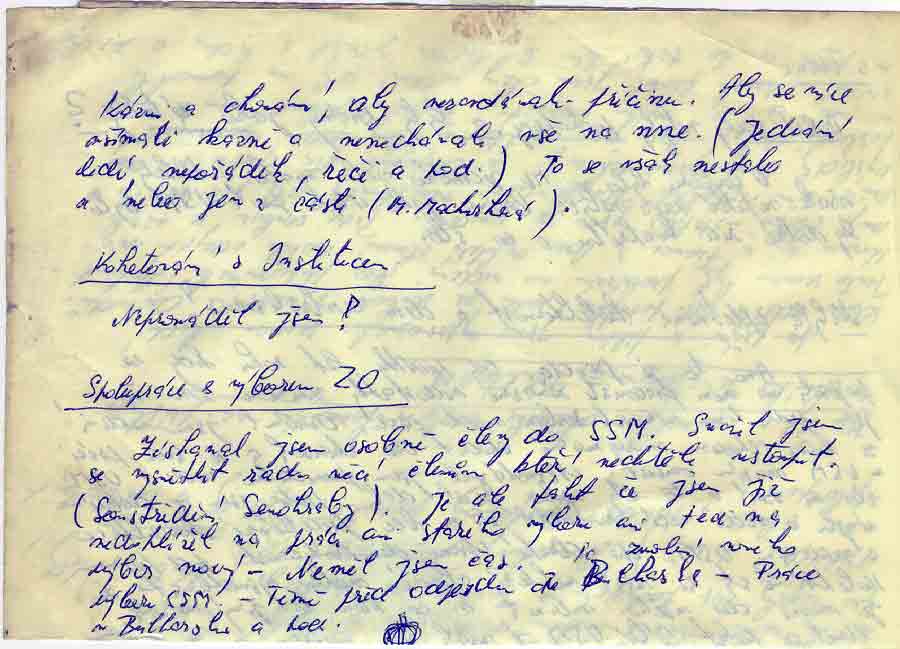 kázni a chování, aby nezavdávali příčinu. Aby se více
všímali kázně a nenechávali vše na mne. (Jednání
lidí, nepořádek, řeči a pod.) To se však nestalo
a nebo jen z části (M. ).
Koketování s Institucem
Neprováděl jsem!
Spolupráce s výborem ZO
Získával jsem osobně členy do SSM. Snažil jsem
se vysvětlit řadu věcí členům kteří nechtěli vstoupit.
(Soustředění Senohraby). Je ale fakt že jsem již
nedohlížel na práci ani starého výboru ani teď na
výbor nový - Neměl jsem čas. je nového
výboru SSM. - Těsně před odjezdem do Bulharska - Práce
v Bulharsku a pod.